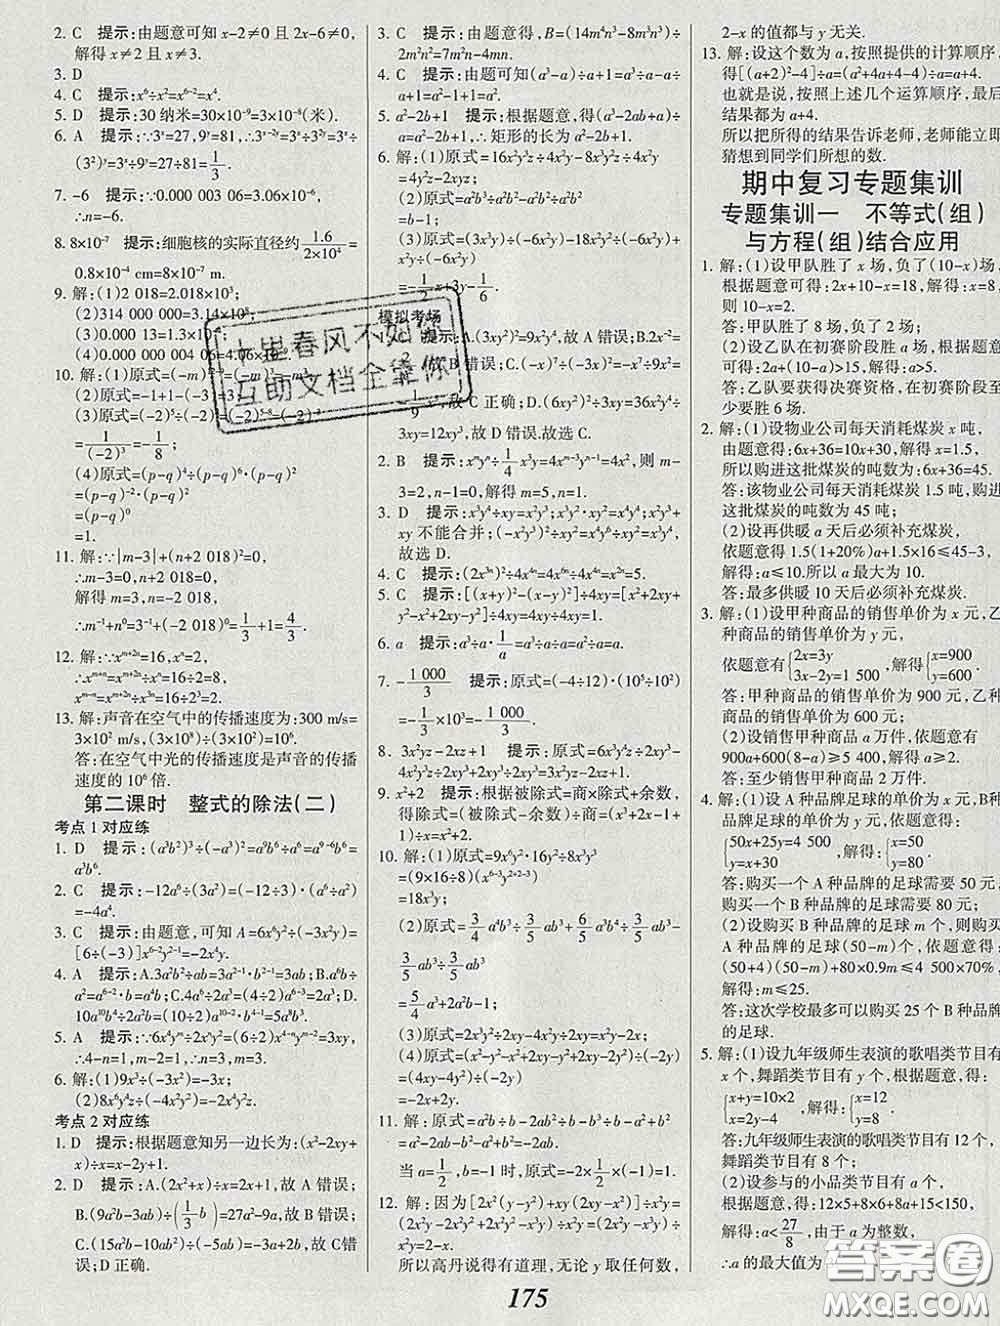 2. C　提示:由题意可知 x-2≠0 且 2x-6≠0,
解得 x≠2 且 x≠3.
3. D
4. C　提示:x⁶÷x²=x⁶⁻²=x⁴.
5. D　提示:30 纳米=30×10⁻⁹=3×10⁻⁸(米).
7. -6　提示:∵0.000 003 06=3.06×10⁻⁶,
∴n=-6.
8. 8×10⁻⁷　提示:细胞核的实际直径约 1.6/(2×10⁴) =
0.8×10⁻⁴ cm=8×10⁻⁷ m.
9. 解:(1)2 018=2.018×10³;
(2)314 000 000=3.14×10⁸;
(4)原式=(p-q)⁴÷(p-q)⁶·(p-q)²
=(p-q)⁻²·(p-q)²
=(p-q)⁰
=1.
11. 解:∵|m-3|+(n+2 018)²=0,
∴m-3=0,n+2 018=0,
解得 m=3,n=-2 018,
∴m⁻¹+n⁰=3⁻¹+(-2 018)⁰=1/3+1=4/3.
12. 解:∵xᵐ⁺²ⁿ=16,xⁿ=2,
∴xᵐ⁺²ⁿ÷xⁿ=xᵐ⁺ⁿ=16÷2=8,
13. 解:声音在空气中的传播速度为:300 m/s=
3×10² m/s, (3×10⁸)÷(3×10²)=10⁶.
答:在空气中光的传播速度是声音的传播
速度的 10⁶ 倍.
第二课时　整式的除法(二)
考点 1 对应练
1. D　提示:(a³b²)³÷(-a³)²=a⁹b⁶÷a⁶=a⁹⁻⁶b⁶=
a³b⁶.
2. C　提示:-12a⁶÷(3a²)=(-12÷3)·(a⁶÷a²)
=-4a⁴.
3. C　提示:由题意,可知 A=6x⁶y²÷(-3x²y)=
[6÷(-3)]x⁶⁻²y²⁻¹=-2x⁴y.
4. A　提示:A.3a²b÷ab=3a²⁻¹·b¹⁻¹=3a;B.a⁶b÷
a²=a⁶⁻²·b=a⁴b;C.4a⁶÷2a³=(4÷2)a⁶⁻³=2a³;D.
10a¹⁰b⁴÷2a²b=(10÷2)a¹⁰⁻²·b⁴⁻¹=5a⁸b³.
5. A　提示:∵6x⁴yᵐ÷2xⁿy²=(6÷2)x⁴⁻ⁿyᵐ⁻²=3xy,
∴4-n=1,m-2=1,∴m=3,n=3.
6. 解:(1)9x³÷(-3x²)=-3x;
(2)8x⁶y³z÷(-4x²y²)=-2x⁴yz.
考点 2 对应练
1. D　提示:根据题意知另一边长为:(x²-2xy+
x)÷x=x-2y+1.
2. D　提示:A.(2x²+x)÷x=2x+1,故 A 错误;
B.(9a²b-3ab)÷(1/3 b)=27a²-9a,故 B 错误;
C.(15a²b-10ab²)÷(-5ab)=-3a+2b,故 C错
误;D正确.
3. C　提示:由题意得,B=(14m⁴n³-8m³n³)÷
2m²n²=7m²n-4mn.
4. C　提示:由题可知(a³-a)÷a+1=a³÷a-a÷
a+1=a²-1+1=a².
5. a²-2b+1　提示:根据题意,得(a³-2ab+a)÷
a=a²-2b+1,∴矩形的长为 a²-2b+1.
6. 解:(1)原式=16x²y³z÷4x²y-8x³y²z÷4x²y
=4y²z-2xyz;
=b-1;
模拟考场
3xy=12xy³,故 D 错误.故选 C.
2. B　提示:xᵐyⁿ÷1/4 x³y=4xᵐ⁻³yⁿ⁻¹=4x²,则 m-
3=2,n-1=0,解得 m=5,n=1.
xy 不能合并;
故选 D.
4. C　提示:(2x³ⁿ)²÷4x⁴ⁿ=4x⁶ⁿ÷4x⁴ⁿ=x²ⁿ=5.
5. C　提示:[(x+y)²-(x-y)²]÷4xy=[x²+2xy+
y²-x²+2xy-y²]÷4xy=4xy÷4xy=1.
6. a　提示:a³÷a·1/a=a³÷a÷a=a²÷a=a.
7. -1 000/3　提示:原式=(-4÷12)·(10⁵÷10²)
=-1/3×10³=-1 000/3.
9. x²+2　提示:根据被除式=商×除式+余数,
得除式=(被除式-余数)÷商=(x³+2x-1+
1)÷x=x²+2.
10. 解:(1)原式=9x⁶y²·16x²y÷8x³y³
=18x⁵y;
=5/4 a³+2a²b-1;
(3)原式=2x³y²÷2xy-4x²y÷2xy=x²y-2x;
(4)原式=(x²-y²-x²+2xy-y²+2xy-2y²)÷(-2y)
=(-4y²+4xy)÷(-2y)
=-2x+2y.
11. 解:原式=a²b÷b-2ab²÷b-b³÷b-(a²-b²)=
a²-2ab-b²-a²+b²=-2ab.
当 a=1/2,b=-1 时,原式=-2×1/2×(-1)=1.
12. 解:因为[2x²(y-y²)+xy(2xy-x²)]÷x²y=
(2x²y-2x²y²+2x²y²-x³y)÷x²y=(2x²y-x³y)÷
x²y=2-x.
所以高丹说得有道理,无论 y 取任何数,
2-x 的值都与 y 无关.
13. 解:设这个数为 a,按照提供的计算顺序,
得[(a+2)²-4]÷a=(a²+4a+4-4)÷a=a+4.
也就是说,按照上述几个运算顺序,最后
结果都为 a+4.
所以把所得的结果告诉老师,老师能立即
猜想到同学们所想的数.
期中复习专题集训
专题集训一　不等式(组)
与方程(组)结合应用
1. 解:(1)设甲队胜了 x 场,负了(10-x)场,
根据题意可得:2x+10-x=18,解得:x=8,
则 10-x=2.
答:甲队胜了 8 场,负了 2 场;
(2)设乙队在初赛阶段胜 a 场,根据题意
可得:2a+(10-a)>15,解得:a>5.
答:乙队要获得决赛资格,在初赛阶段至
少要胜 6 场.
2. 解:(1)设物业公司每天消耗煤炭 x 吨,
由题意得:6x+36=10x+30,解得:x=1.5,
所以购进这批煤炭的吨数为:6x+36=45.
答:该物业公司每天消耗煤炭 1.5 吨,购进
这批煤炭的吨数为 45 吨;
(2)设再供暖 a 天后必须补充煤炭,
依题意得 1.5(1+20%)a+1.5×16≤45-3,
解得:a≤10.所以 a 最大为 10.
答:最多供暖 10 天后必须补充煤炭.
3. 解:(1)设甲种商品的销售单价为 x 元,乙
种商品的销售单价为 y 元,
依题意有{2x=3y 3x-2y=1 500,解得{x=900 y=600.
答:甲种商品的销售单价为 900 元,乙种
商品的销售单价为 600 元;
(2)设销售甲种商品 a 万件,依题意有
900a+600(8-a)≥5 400,解得 a≥2.
答:至少销售甲种商品 2 万件.
4. 解:(1)设 A 种品牌足球的单价为 x 元,B种
品牌足球的单价为 y 元,依题意得:
{50x+25y=4 500 y=x+30,解得:{x=50 y=80.
答:购买一个 A 种品牌的足球需要 50 元,
购买一个 B 种品牌的足球需要 80 元.
(2)设购买 B 种品牌的足球 m 个,则购买
A 种品牌的足球(50-m)个,依题意得:
(50+4)(50-m)+80×0.9m≤4 500×70%,
解得:m≤25.
答:这次学校最多可以购买 25 个 B 种品牌
的足球.
5. 解:(1)设九年级师生表演的歌唱类节目有
x 个,舞蹈类节目有 y 个,根据题意,得:
{x+y=10×2 x=2y-4,解得:{x=12 y=8.
答:九年级师生表演的歌唱类节目有 12 个,
舞蹈类节目有 8 个;
(2)设参与的小品类节目有 a 个,
根据题意,得:12×5+8×6+8a+15<150,
解得:a<27/8,由于 a 为整数,
∴a 的最大值为
175
答案圈
MXQE.COM